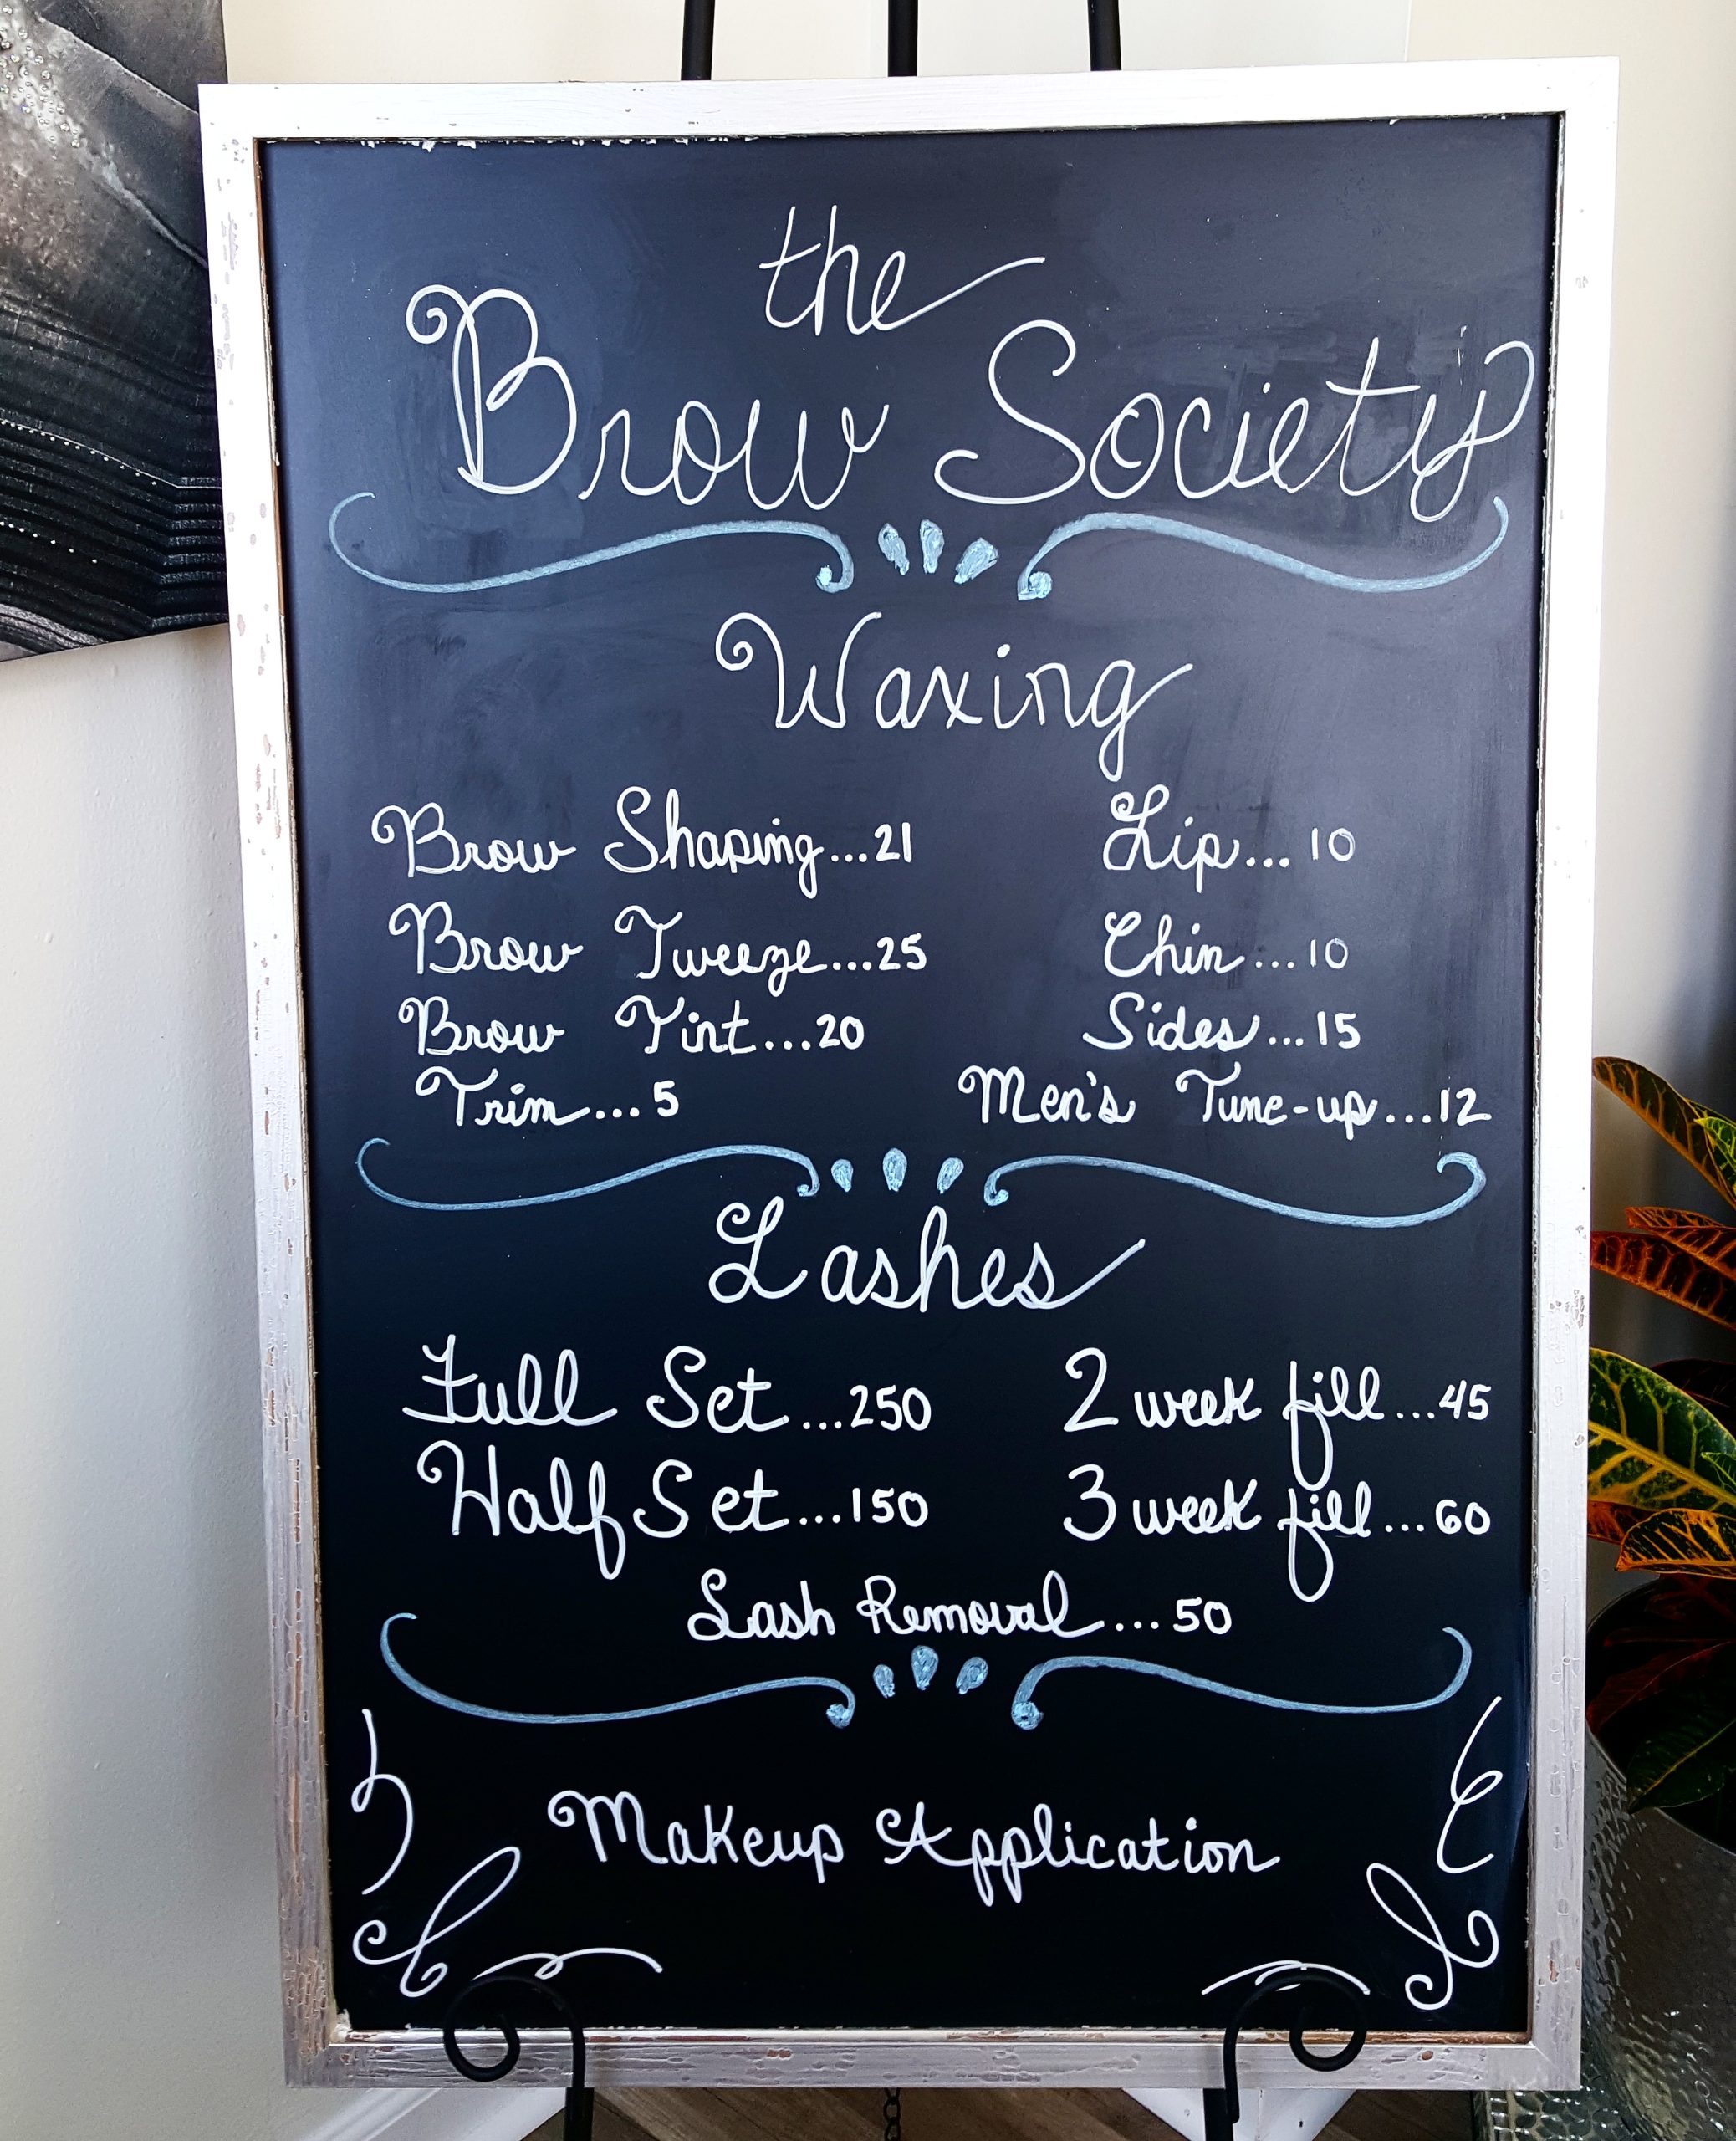 the
Brow Society
Waxing
Brow Shaping...21
Lip...10
Brow Tweeze...25
Chin...10
Brow Tint...20
Sides...15
Trim...5
Men's Tune-up...12
Lashes
Full Set...250
2 week fill...45
Half Set...150
3 week fill...60
Lash Removal...50
Makeup Application